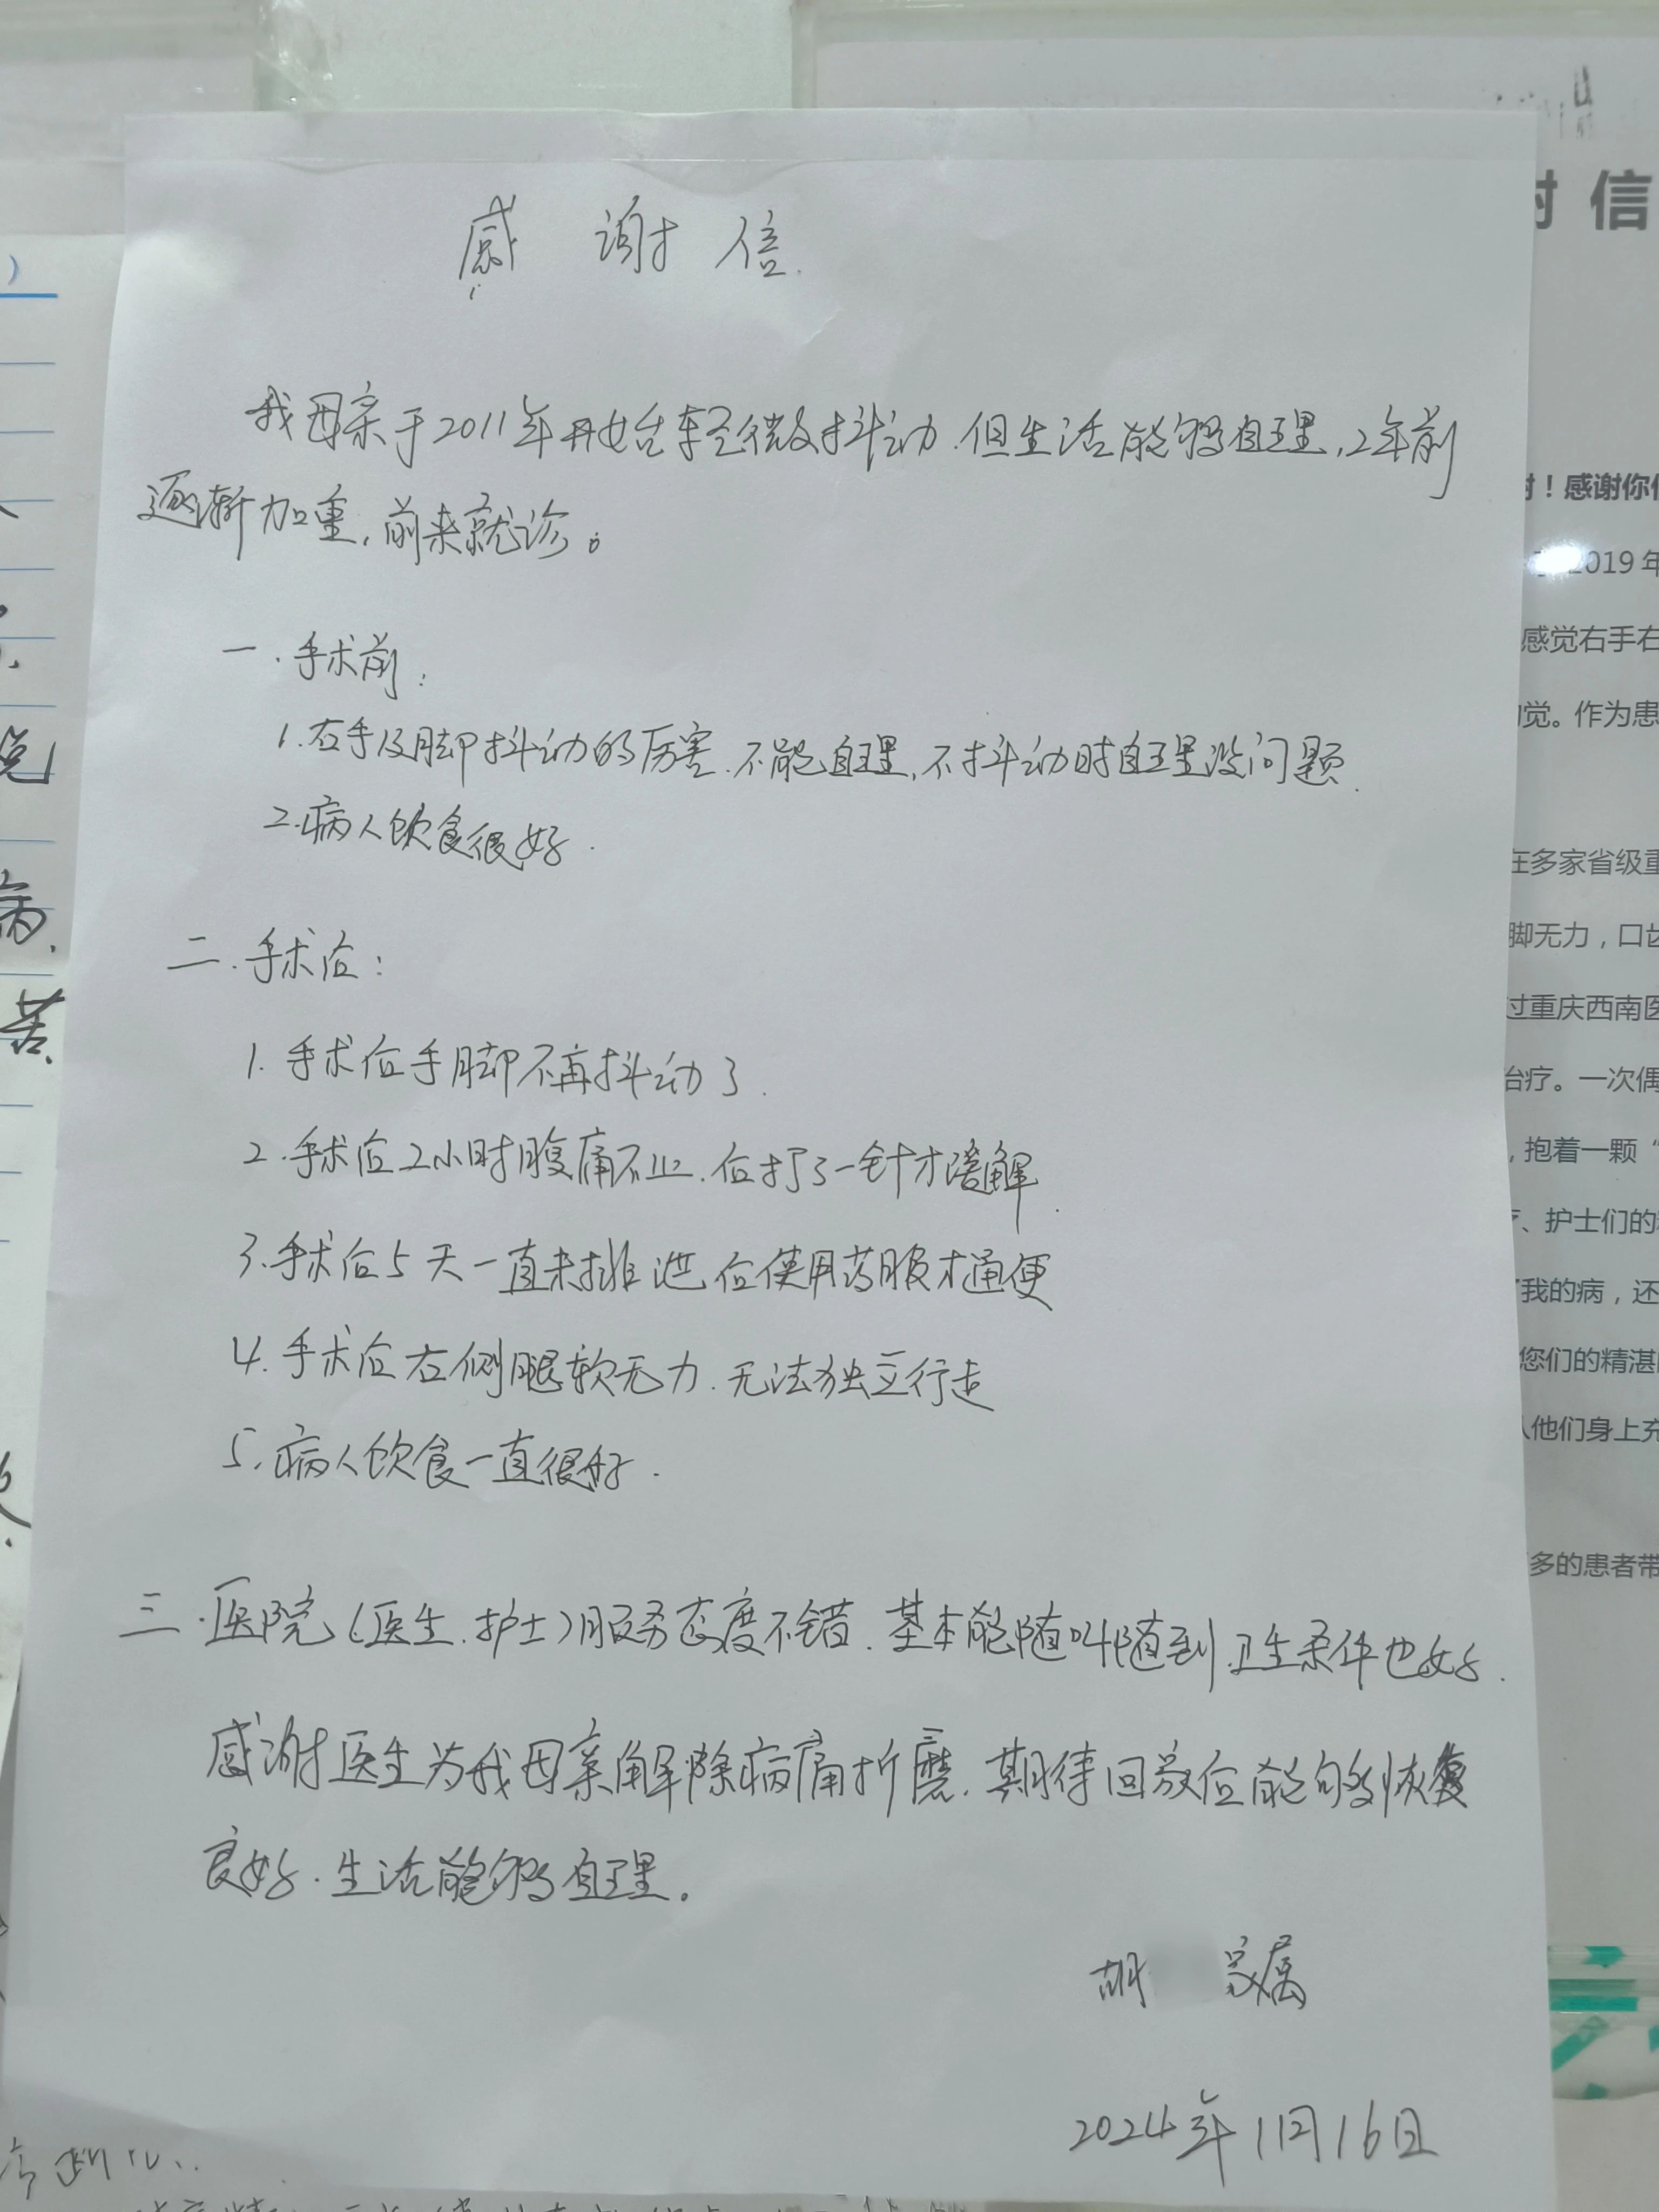 感 谢 信.
我母亲于2011年开始轻微抖动.但生活能够自理,2年前
逐渐加重,前来就诊。
一.手术前:
1.右手及脚抖动的厉害.不能自理,不抖动时自理没问题.
2.病人饮食很好.
二.手术后:
1.手术后手脚不再抖动了.
2.手术后2小时腹痛不止.后打了一针才缓解.
3.手术后5天一直未排泄,后使用药服才通便
4.手术后右侧腿软无力.无法独立行走
5.病人饮食一直很好.
三.医院(医生.护士)服务态度不错.基本能随叫随到.卫生条件也好.
感谢医生为我母亲解除病痛折磨.期待回家后能够恢复
良好.生活能够自理.
胡 家属
2024年1月16日
谢 信
谢!感谢你
2019年
感觉右手右
觉。作为患
在多家省级重
脚无力,口齿
过重庆西南医
治疗。一次偶
,抱着一颗“
、护士们的
我的病,还
您们的精湛
人他们身上充
多的患者带
病.
苦.